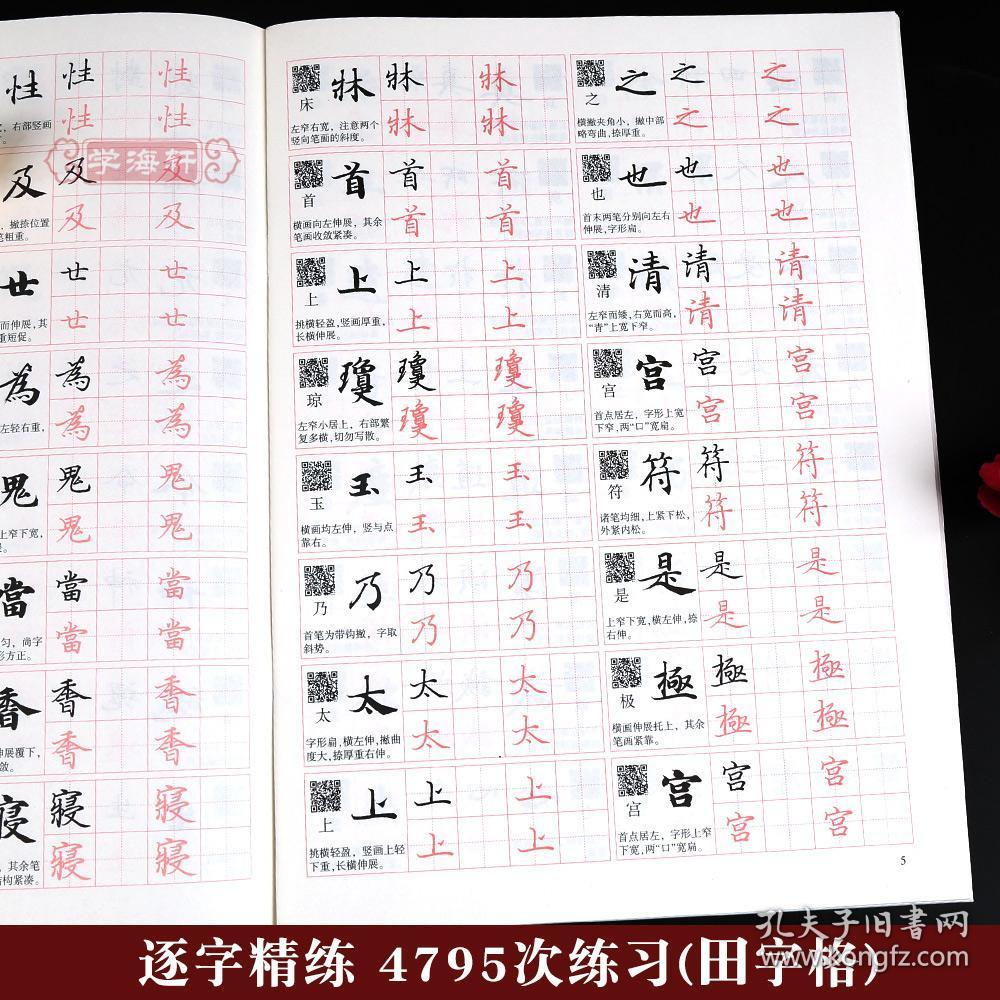 性 性 性
性 性
，右部竖画
学海轩
及 及 及
及 及
，撇捺位置
笔粗重。
廿 廿 廿
廿 廿
而伸展，其
重短促。
為 為 為
為 為
左轻右重，
鬼 鬼 鬼
鬼 鬼
上窄下宽，
當 當 當
當 當
匀，尚字
形方正。
香 香 香
香 香
伸展覆下，
敛。
寢 寢 寢
寢 寢
，其余笔
结构紧凑。
床 牀 牀 牀
牀 牀
左窄右宽，注意两个
竖向笔画的斜度。
首 首 首 首
首 首
横画向左伸展，其余
笔画收敛紧凑。
上 上 上 上
上 上
挑横轻盈，竖画厚重，
长横伸展。
琼 瓊 瓊 瓊
瓊 瓊
左窄小居上，右部繁
复多横，切勿写散。
玉 玉 玉 玉
玉 玉
横画均左伸，竖与点
靠右。
乃 乃 乃 乃
乃 乃
首笔为带钩撇，字取
斜势。
太 太 太 太
太 太
字形扁，横左伸，撇曲
度大，捺厚重右伸。
上 上 上 上
上 上
挑横轻盈，竖画上轻
下重，长横伸展。
之 之 之 之
之 之
横撇夹角小，撇中部
略弯曲，捺厚重。
也 也 也 也
也 也
首末两笔分别向左右
伸展，字形扁。
清 清 清 清
清 清
左窄而矮，右宽而高，
“青”上宽下窄。
宫 宫 宫 宫
宫 宫
首点居左，字形上宽
下窄，两“口”宽扁。
符 符 符 符
符 符
诸笔均细，上紧下松，
外紧内松。
是 是 是 是
是 是
上窄下宽，横左伸，捺
右伸。
极 極 極 極
極 極
横画伸展托上，其余
笔画紧靠。
宫 宫 宫 宫
宫 宫
首点居左，字形上窄
下宽，两“口”宽扁。
5
孔夫子旧书网
kongfz.com
逐字精练 4795次练习(田字格)